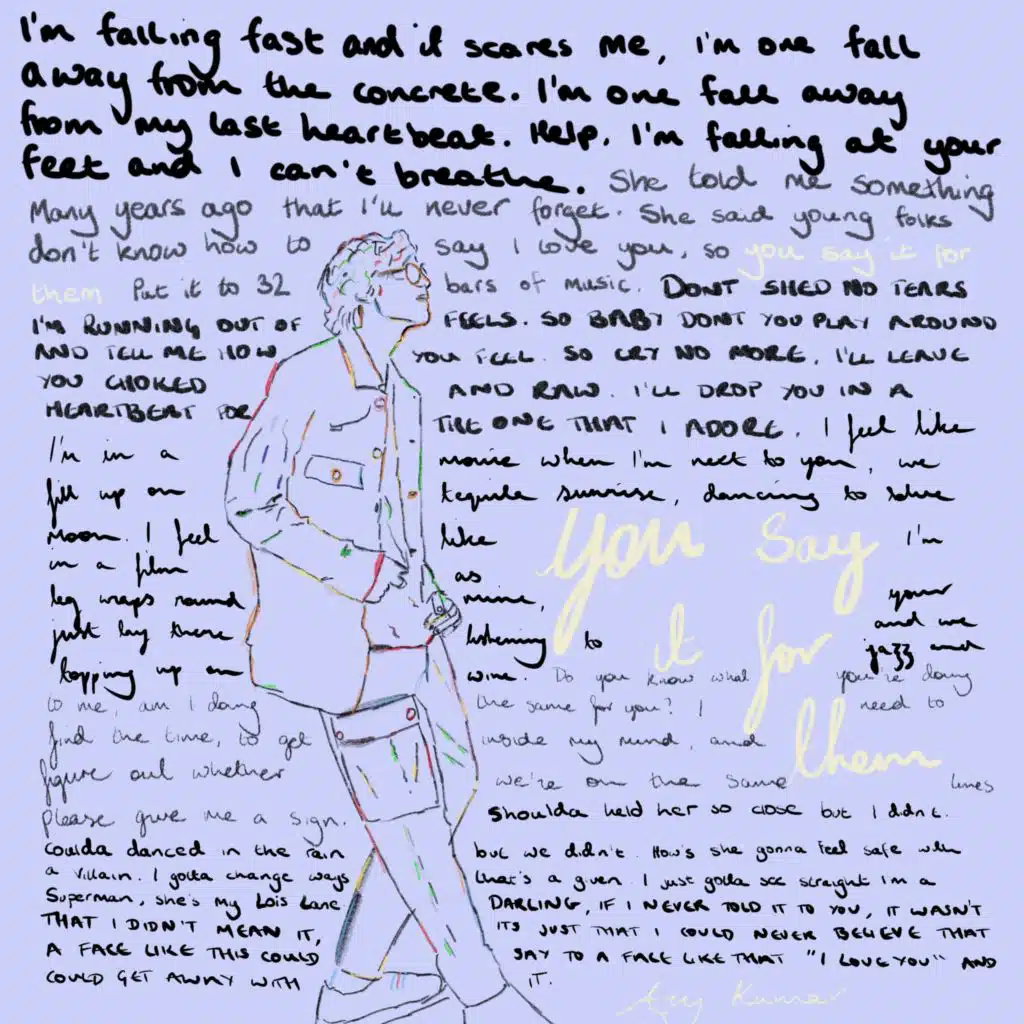 I'm falling fast and it scares me, i'm one fall
away from the concrete. I'm one fall away
from my last heartbeat. Help. I'm falling at your
feet and I can't breathe. She told me something
Many years ago that I'll never forget. She said young folks
don't know how to say I love you, so you say it for
them Put it to 32 bars of music. DONT SHED NO TEARS
I'M RUNNING OUT OF FEELS. SO BABY DONT YOU PLAY AROUND
AND TELL ME HOW YOU FEEL. SO CRY NO MORE, I'LL LEAVE
YOU CHOKED AND RAW. I'LL DROP YOU IN A
HEARTBEAT FOR THE ONE THAT I ADORE. I feel like
I'm in a movie when I'm next to you, we
fill up on tequila sunrise, dancing to solve
moon. I feel like I'm
in a film as
leg wraps round mine, your
just lay there listening to and we
topping up on wine. jazz and
you say
it for
them
Do you know what you're doing
to me, am I doing the same for you? I need to
find the time, to get inside my mind, and
figure out whether we're on the same lines
please give me a sign. Shoulda held her so close but I didn't.
Coulda danced in the rain but we didn't. How's she gonna feel safe with
a villain. I gotta change ways that's a given. I just gotta see straight I'm a
Superman, she's my Lois Lane. DARLING, IF I NEVER TOLD IT TO YOU, IT WASN'T
THAT I DIDN'T MEAN IT, ITS JUST THAT I COULD NEVER BELIEVE THAT
A FACE LIKE THIS COULD SAY TO A FACE LIKE THAT "I LOVE YOU" AND
COULD GET AWAY WITH IT.
Ajay Kumar